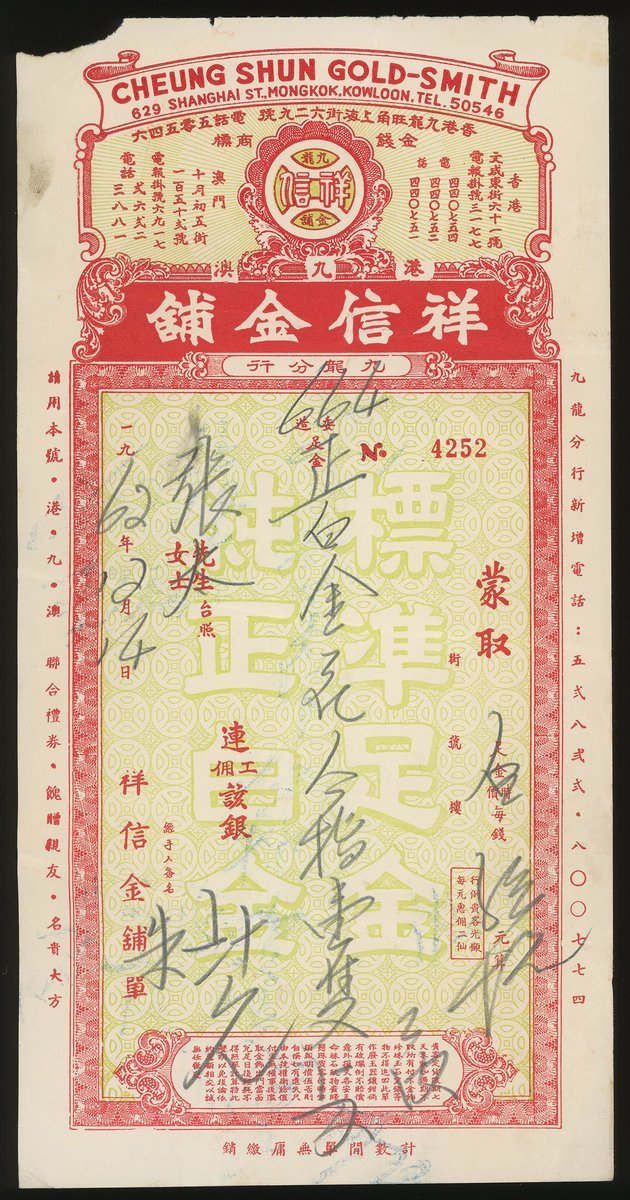 CHEUNG SHUN GOLD-SMITH
629 SHANGHAI ST., MONGKOK, KOWLOON, TEL. 50546
香港九龍旺角上海街六二九號 電話五零五四六
金錢商標
香港
文咸東街六十一號
電報掛號三一七七
電話
四四〇七五四
四四〇七五二
四四〇七五一
九龍
祥信
金舖
澳門
十月初五街
一百五十弍號
電報掛號六九一七
電話
弍六弍二
三八八一
港九澳
祥信金舖
九龍分行
九龍分行新增電話：五弍八弍弍・八〇〇七七四
蒙取
街
號
樓
足金時價每錢
元算
行街貴客光顧
每元惠佣二仙
№ 4252
委造足金
664
正白金花介指壹隻
標準足金
純正白金
連工佣該銀
張太
先生
女士
台照
一九62年12月14日
祥信金舖單
經手人簽名
朱
請用本號・港・九・澳 聯合禮券・餽贈親友・名貴大方
計數開單無庸繳銷